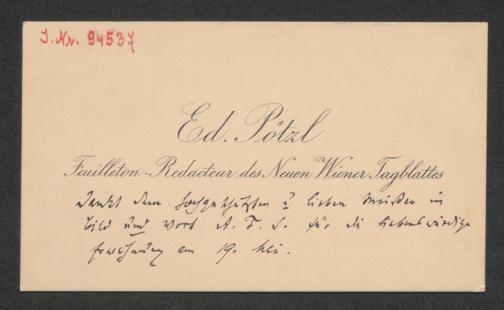 J. Nr. 94537
Ed. Pötzl
Feuilleton-Redacteur des Neuen Wiener Tagblattes
dankt dem hochgeschätzten & lieben Meister in
Bild und Wort A. F. S. für die liebenswürdige
Erwähnung am 19. Mai.